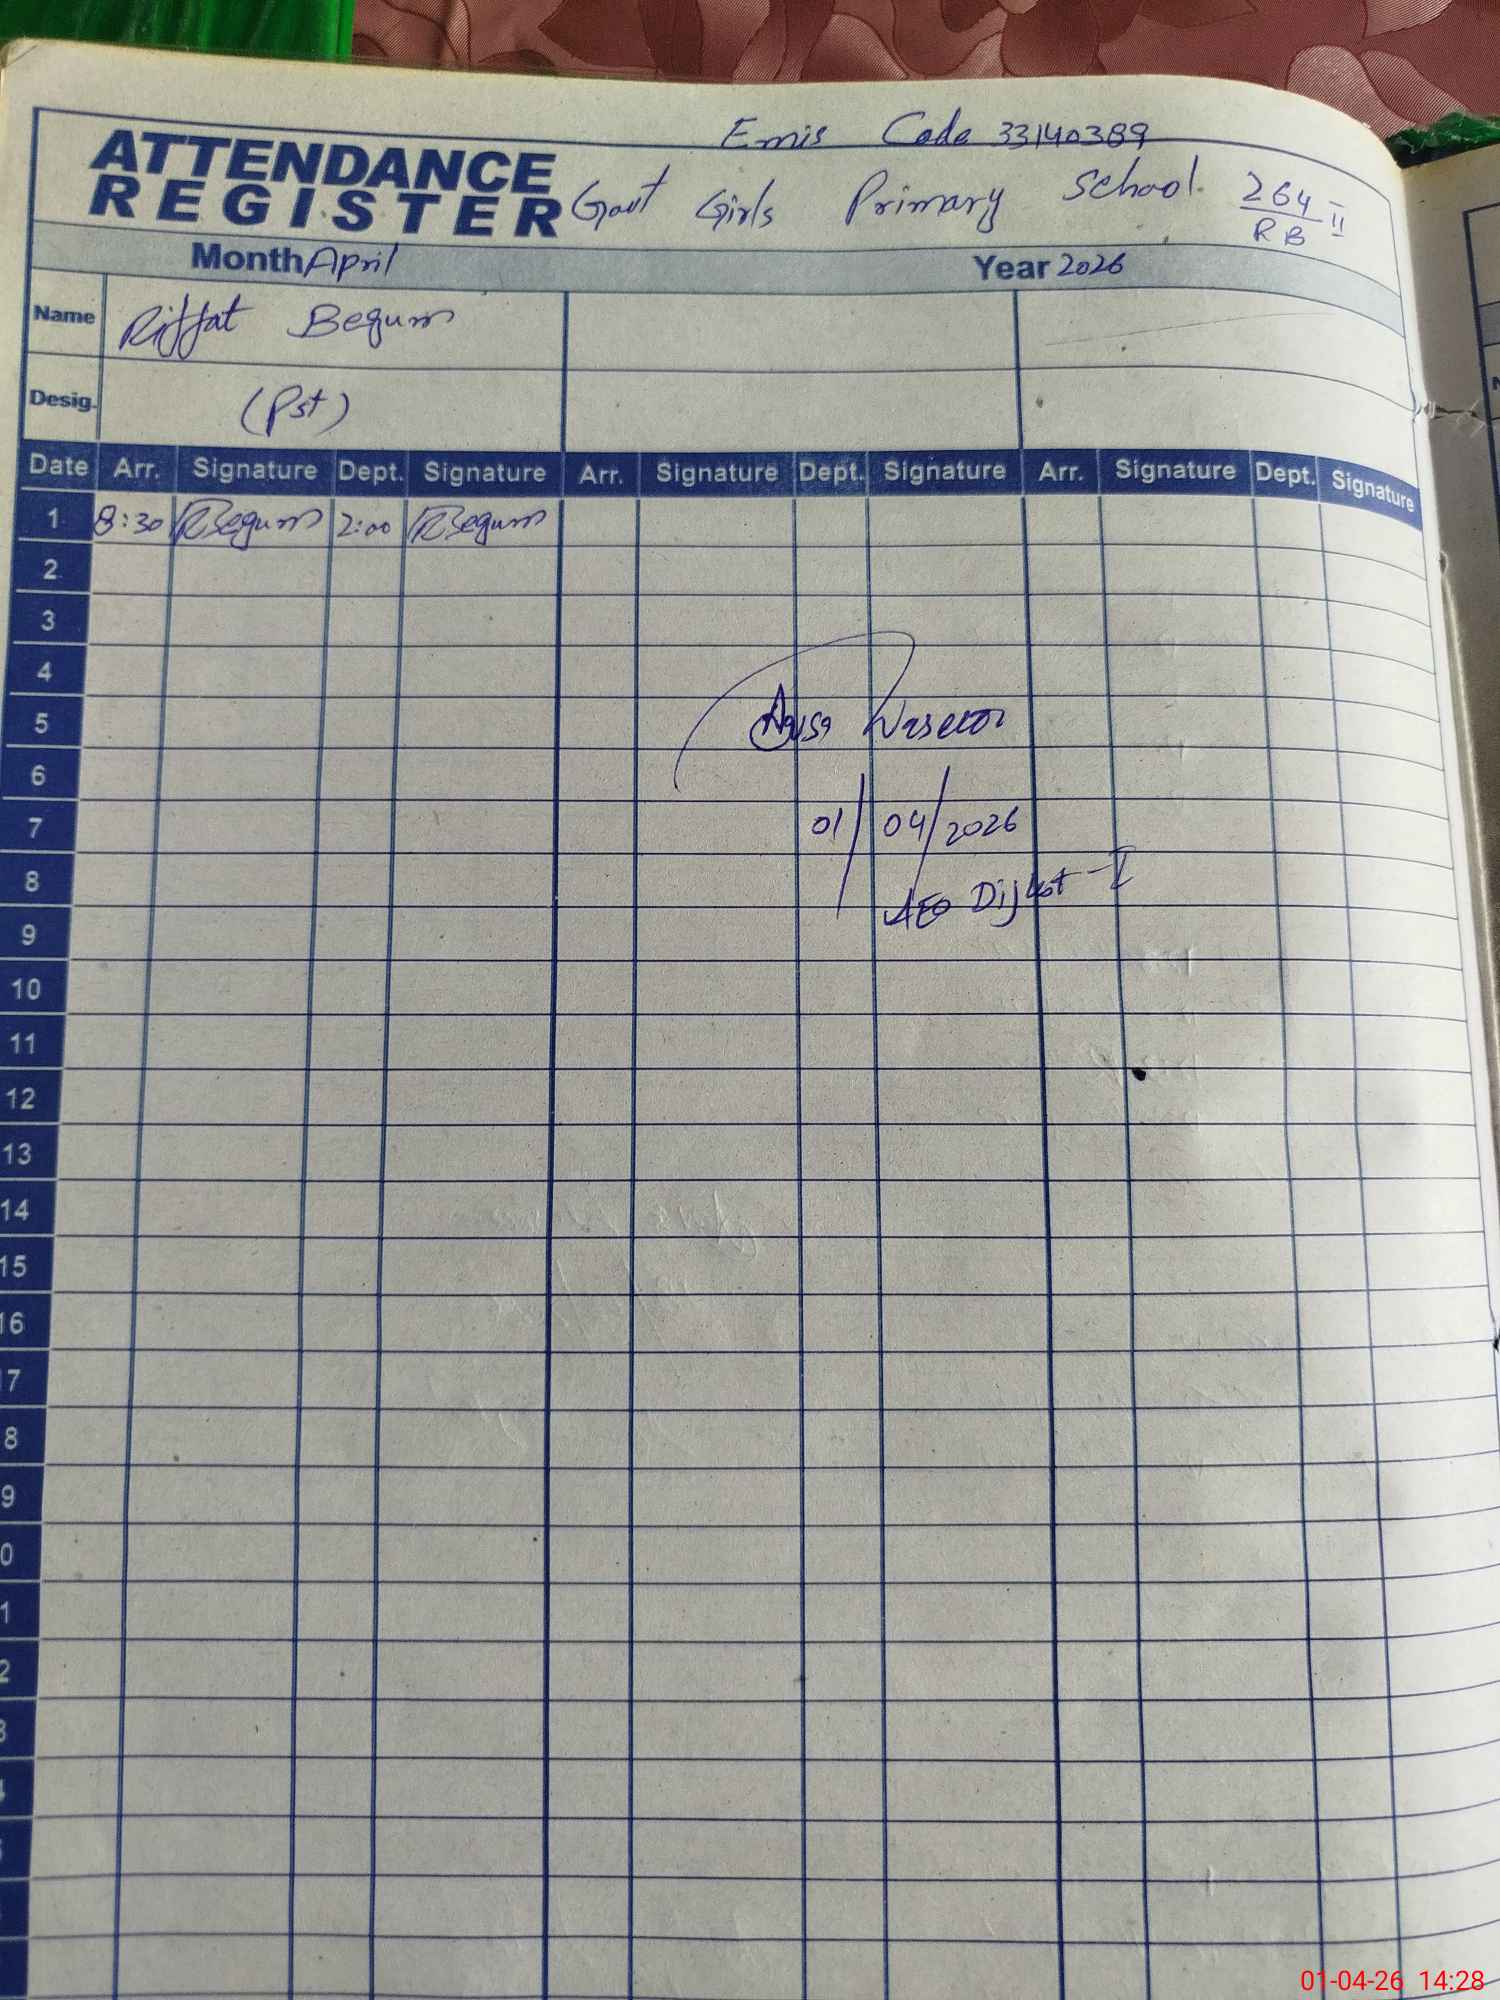 Emis Code 33140389
ATTENDANCE
REGISTER
Govt Girls Primary School. 264 II
RB
Month April Year 2026
Name Riffat Begum
Desig. (Pst)
Date Arr. Signature Dept. Signature Arr. Signature Dept. Signature Arr. Signature Dept. Signature
1 8:30 RBegum 2:00 RBegum
2
3
4
5
6
7 01/04/2026
8
AEO Dijkot-I
9
10
11
12
13
14
15
16
7
8
9
0
1
2
3
4
5
01-04-26 14:28